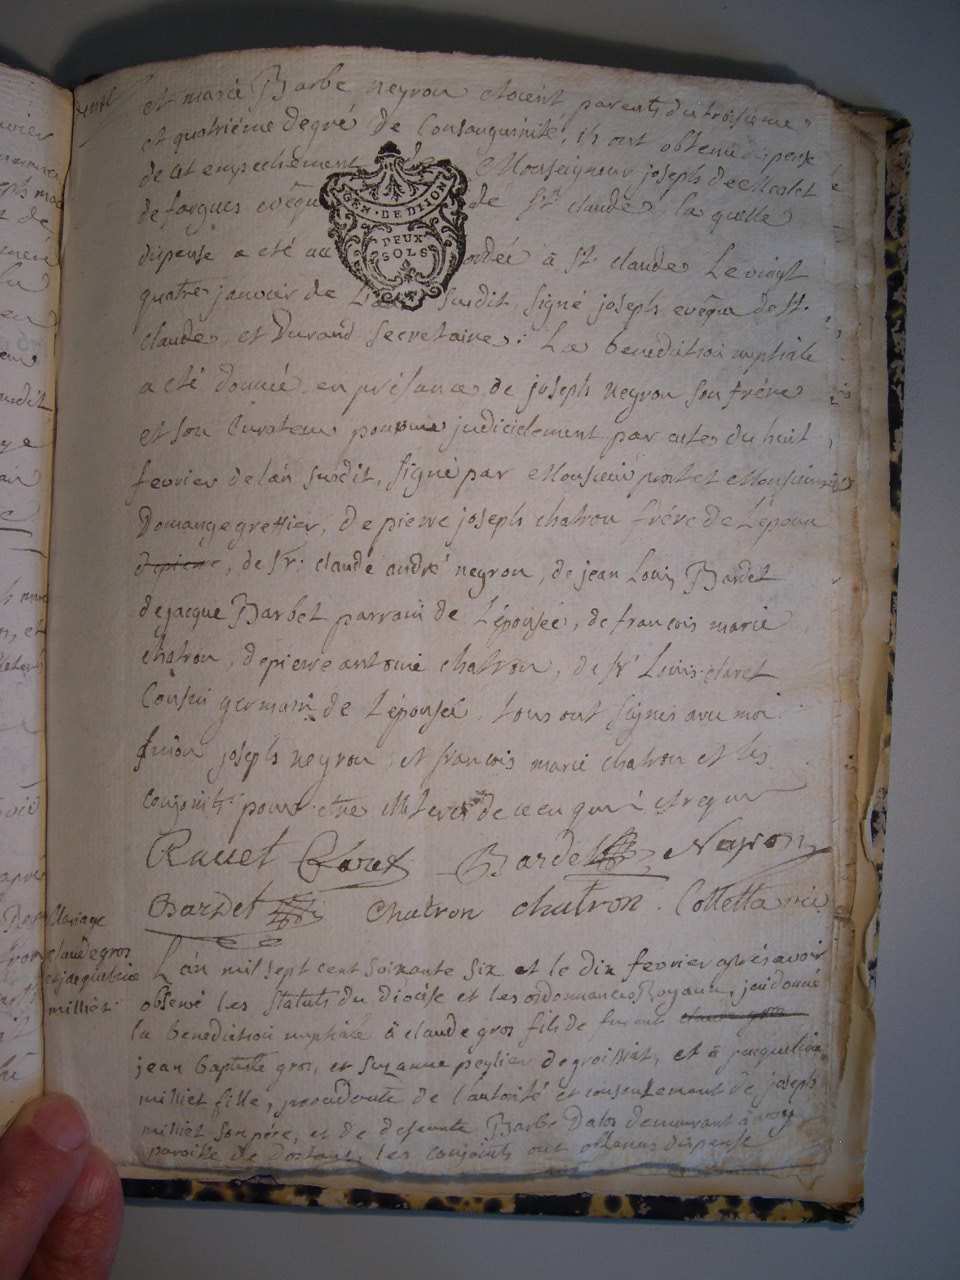 et marie Barbe neyron etoient parents du troisieme
et quatriéme degré de Consanguinité, ils ont obtenu dispense
de cet empechement de Monseigneur joseph de Meslet
de fargues evêque de St. claude, la quelle
GEN · DE DIJON
DEUX
SOLS
dispense a eté accordée à St. claude Le vingt
quatre janvier de L'an susdit, signé joseph evêque de St.
claude, et Durand secretaire. La benediction nuptiale
a eté donnée en présance de joseph neyron son frére
et son Curateur pourvue judiciélement par actes du huit
fevrier de l'án susdit, signé par Monsieur et Monsieur
Domange greffier, de pierre joseph chatron frére de L'époux
de pierre, de Sr. claude andré neyron, de jean Louis Bardet
de jacque Barbet parrain de L'épousée, de françois marie
chatron, de pierre antoine chatron, de Sr Louis claret
Cousin germain de L'épousée, tous ont signés avec moi
sinon joseph neyron, et françois marie chatron et les
conjoints pour etre illiteres de ce enquis et requis
Ravet Claret Bardet Neyron
Bardet chatron chatron. Collettani
Mariage
claude gros
et jacqueline
milliet
L'an mil sept cent soixante six et le dix fevrier aprés avoir
observé les statuts du diocése et les ordonnances Royaux, j'ai donné
la benediction nuptiale à claude gros fils de furent claude gros
jean baptiste gros, et suzanne peylier de groissiat, et à jacqueline
milliet fille, procedente de l'autorité et consentement de joseph
milliet son pére, et de defunte Barbe Dalos demeurant à
paroisse de dortant, les conjoints ont obtenus dispense